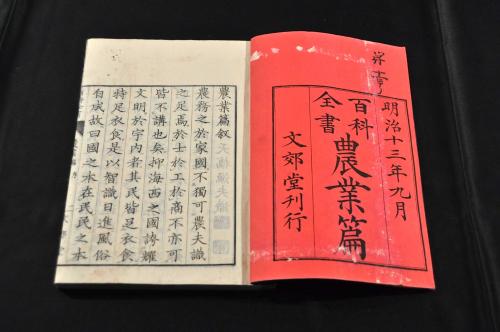 明治十三年九月
百科
全書
農業篇
文郊堂刊行
農業篇叙
農務之於家國不獨可農夫識
之足焉於士於工於商不亦可
皆不講也矣抑海西之國誇耀
文明於宇内者其民皆足衣食
特足衣食是以智識日進風俗
有成故曰國之本在民民之本